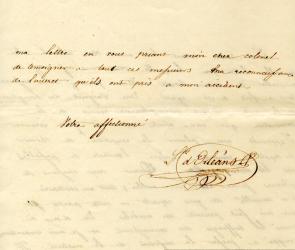 ma lettre en vous priant mon cher colonel
de temoigner a tout ces messieurs ma reconnaissance
de l'interet qu'ils ont pris a mon accident.
Votre affectionné
d'Orléans